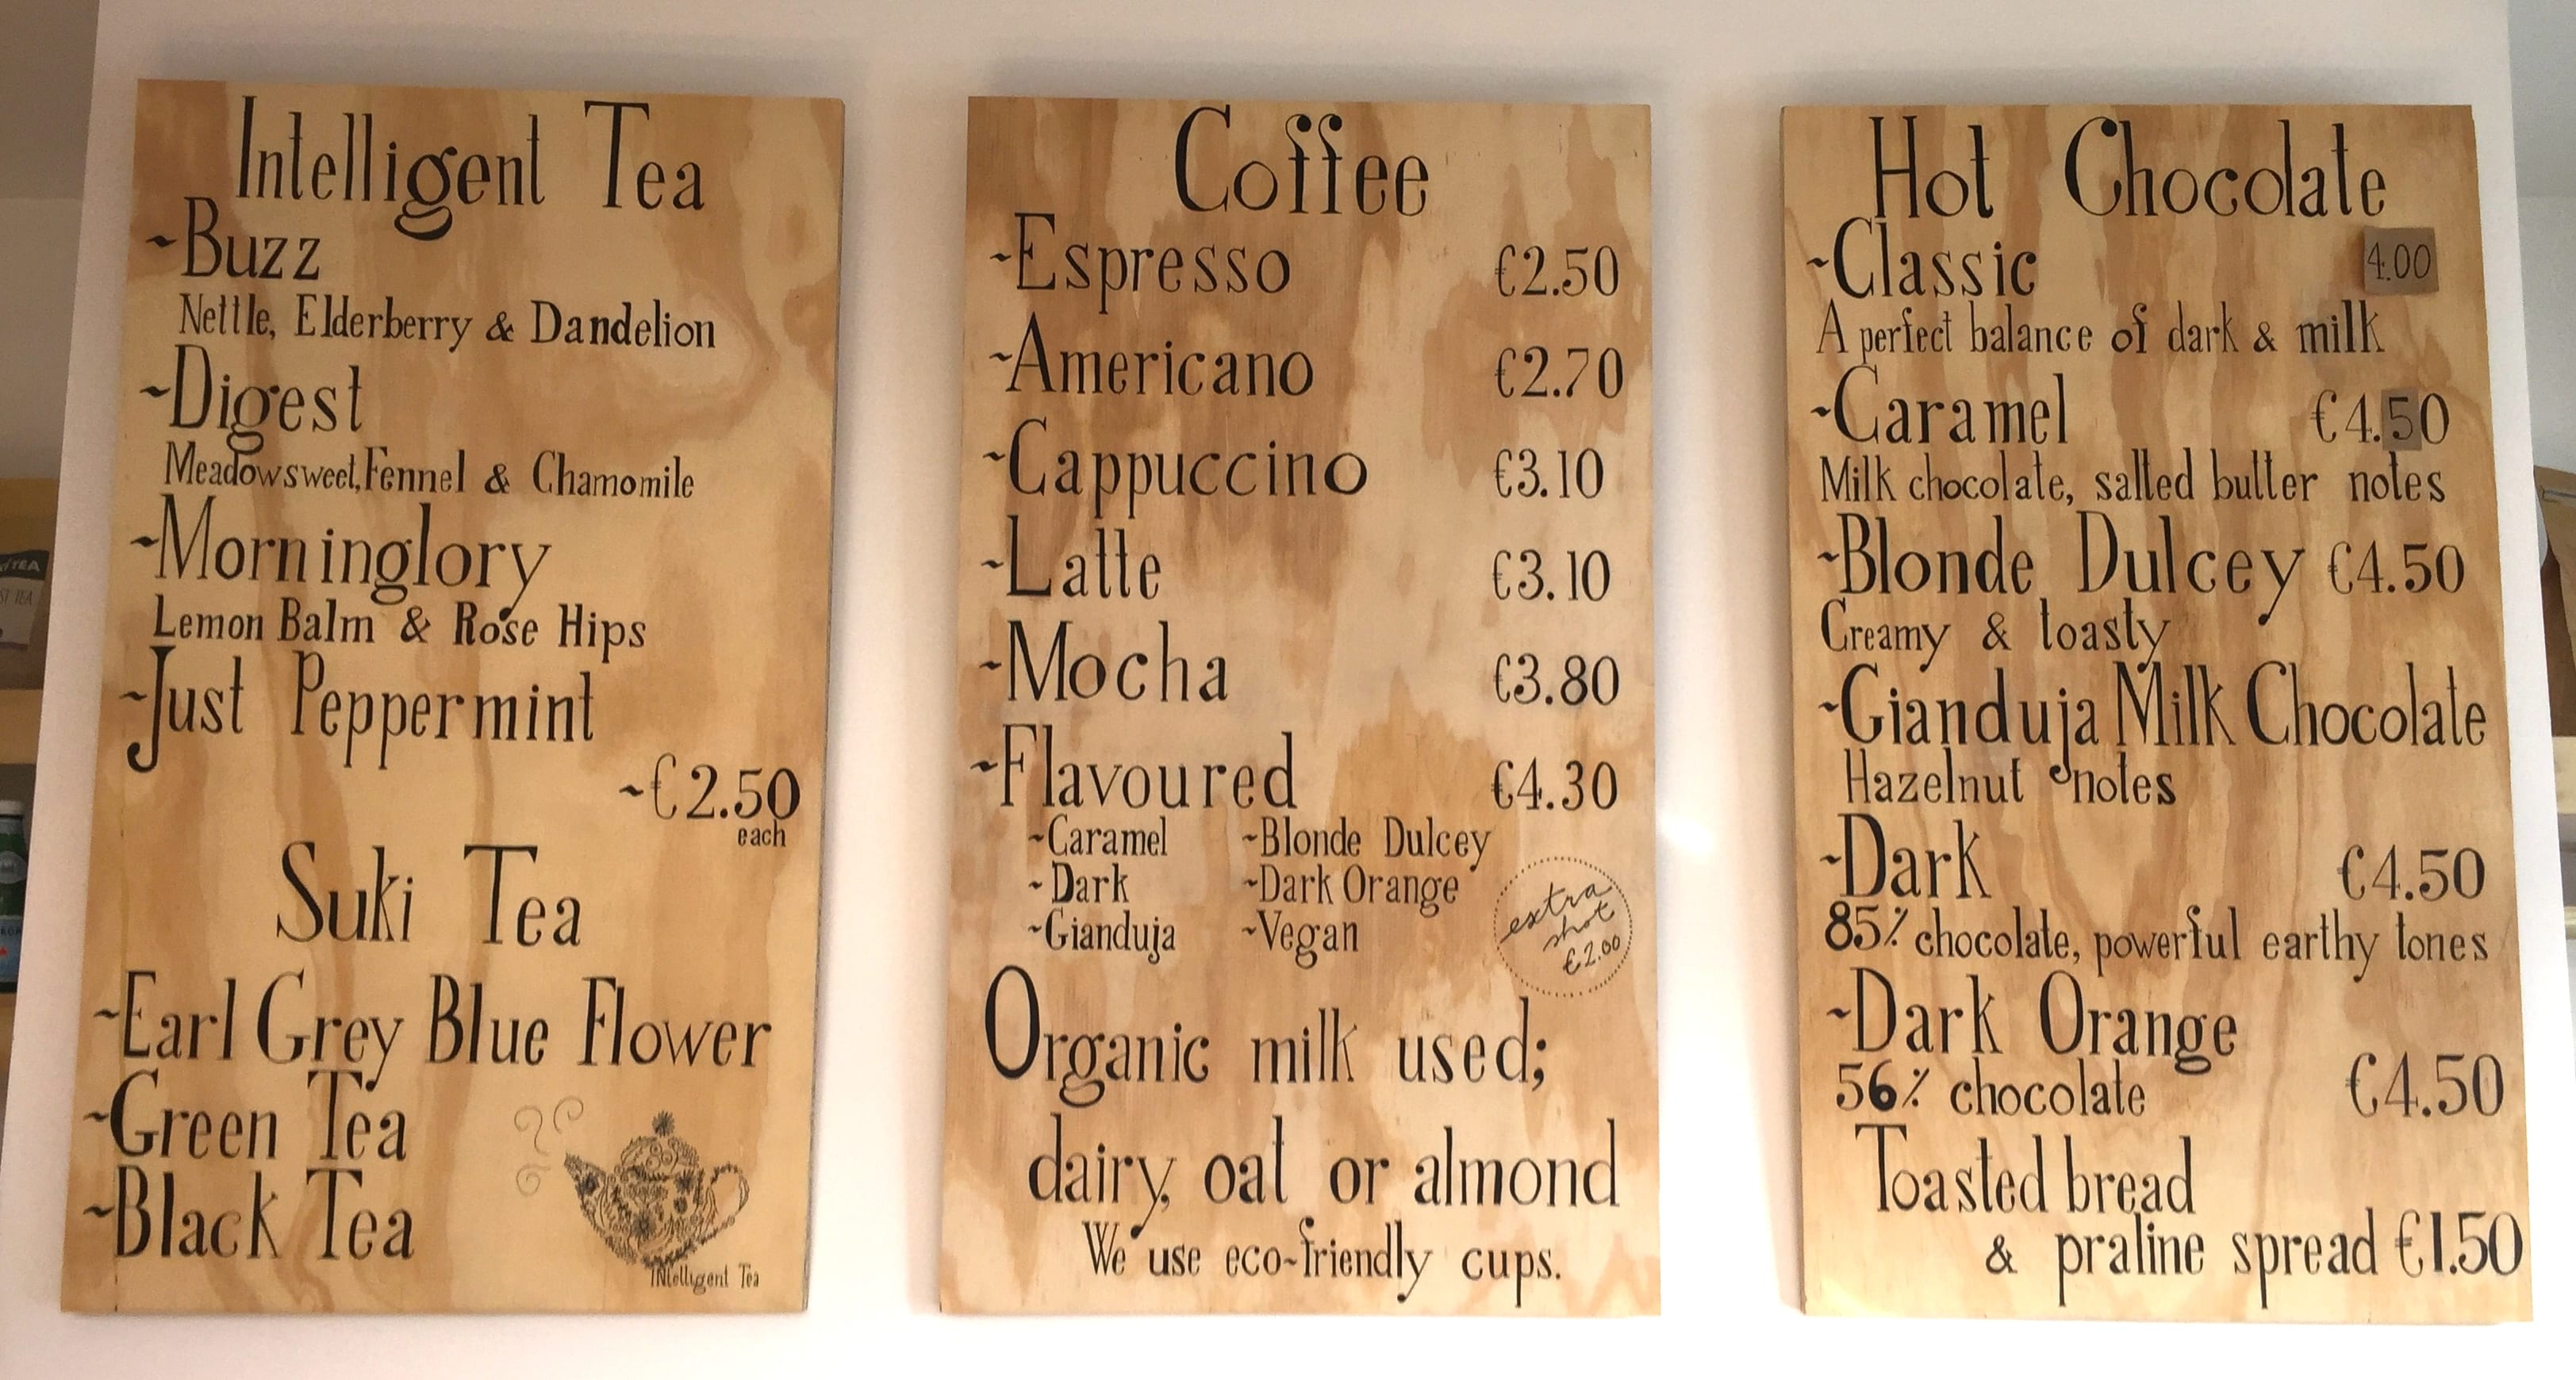 Intelligent Tea
~Buzz
Nettle, Elderberry & Dandelion
~Digest
Meadowsweet, Fennel & Chamomile
~Morninglory
Lemon Balm & Rose Hips
~Just Peppermint
~€2.50
each
Suki Tea
~Earl Grey Blue Flower
~Green Tea
~Black Tea
INtelligent Tea
Coffee
~Espresso €2.50
~Americano €2.70
~Cappuccino €3.10
~Latte €3.10
~Mocha €3.80
~Flavoured €4.30
~Caramel ~Blonde Dulcey
~Dark ~Dark Orange
~Gianduja ~Vegan
extra
shot
€2.00
Organic milk used;
dairy, oat or almond
We use eco-friendly cups.
Hot Chocolate
~Classic 4.00
A perfect balance of dark & milk
~Caramel €4.50
Milk chocolate, salted butter notes
~Blonde Dulcey €4.50
Creamy & toasty
~Gianduja Milk Chocolate
Hazelnut notes
~Dark €4.50
85% chocolate, powerful earthy tones
~Dark Orange
56% chocolate €4.50
Toasted bread
& praline spread €1.50